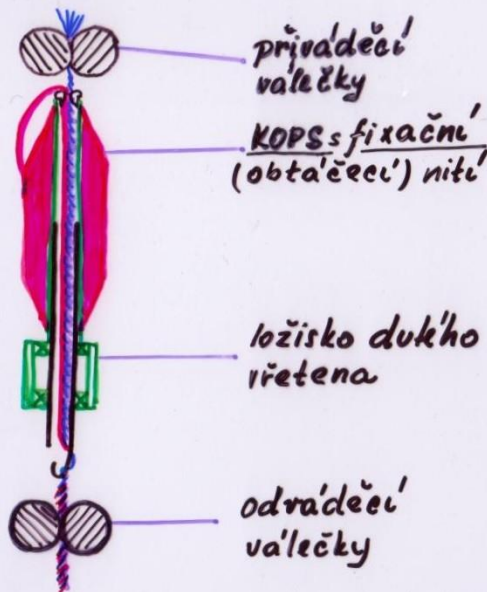 přiváděcí
válečky
KOPS s fixační
(obtáčecí) nití
ložisko dutého
vřetena
odváděcí
válečky